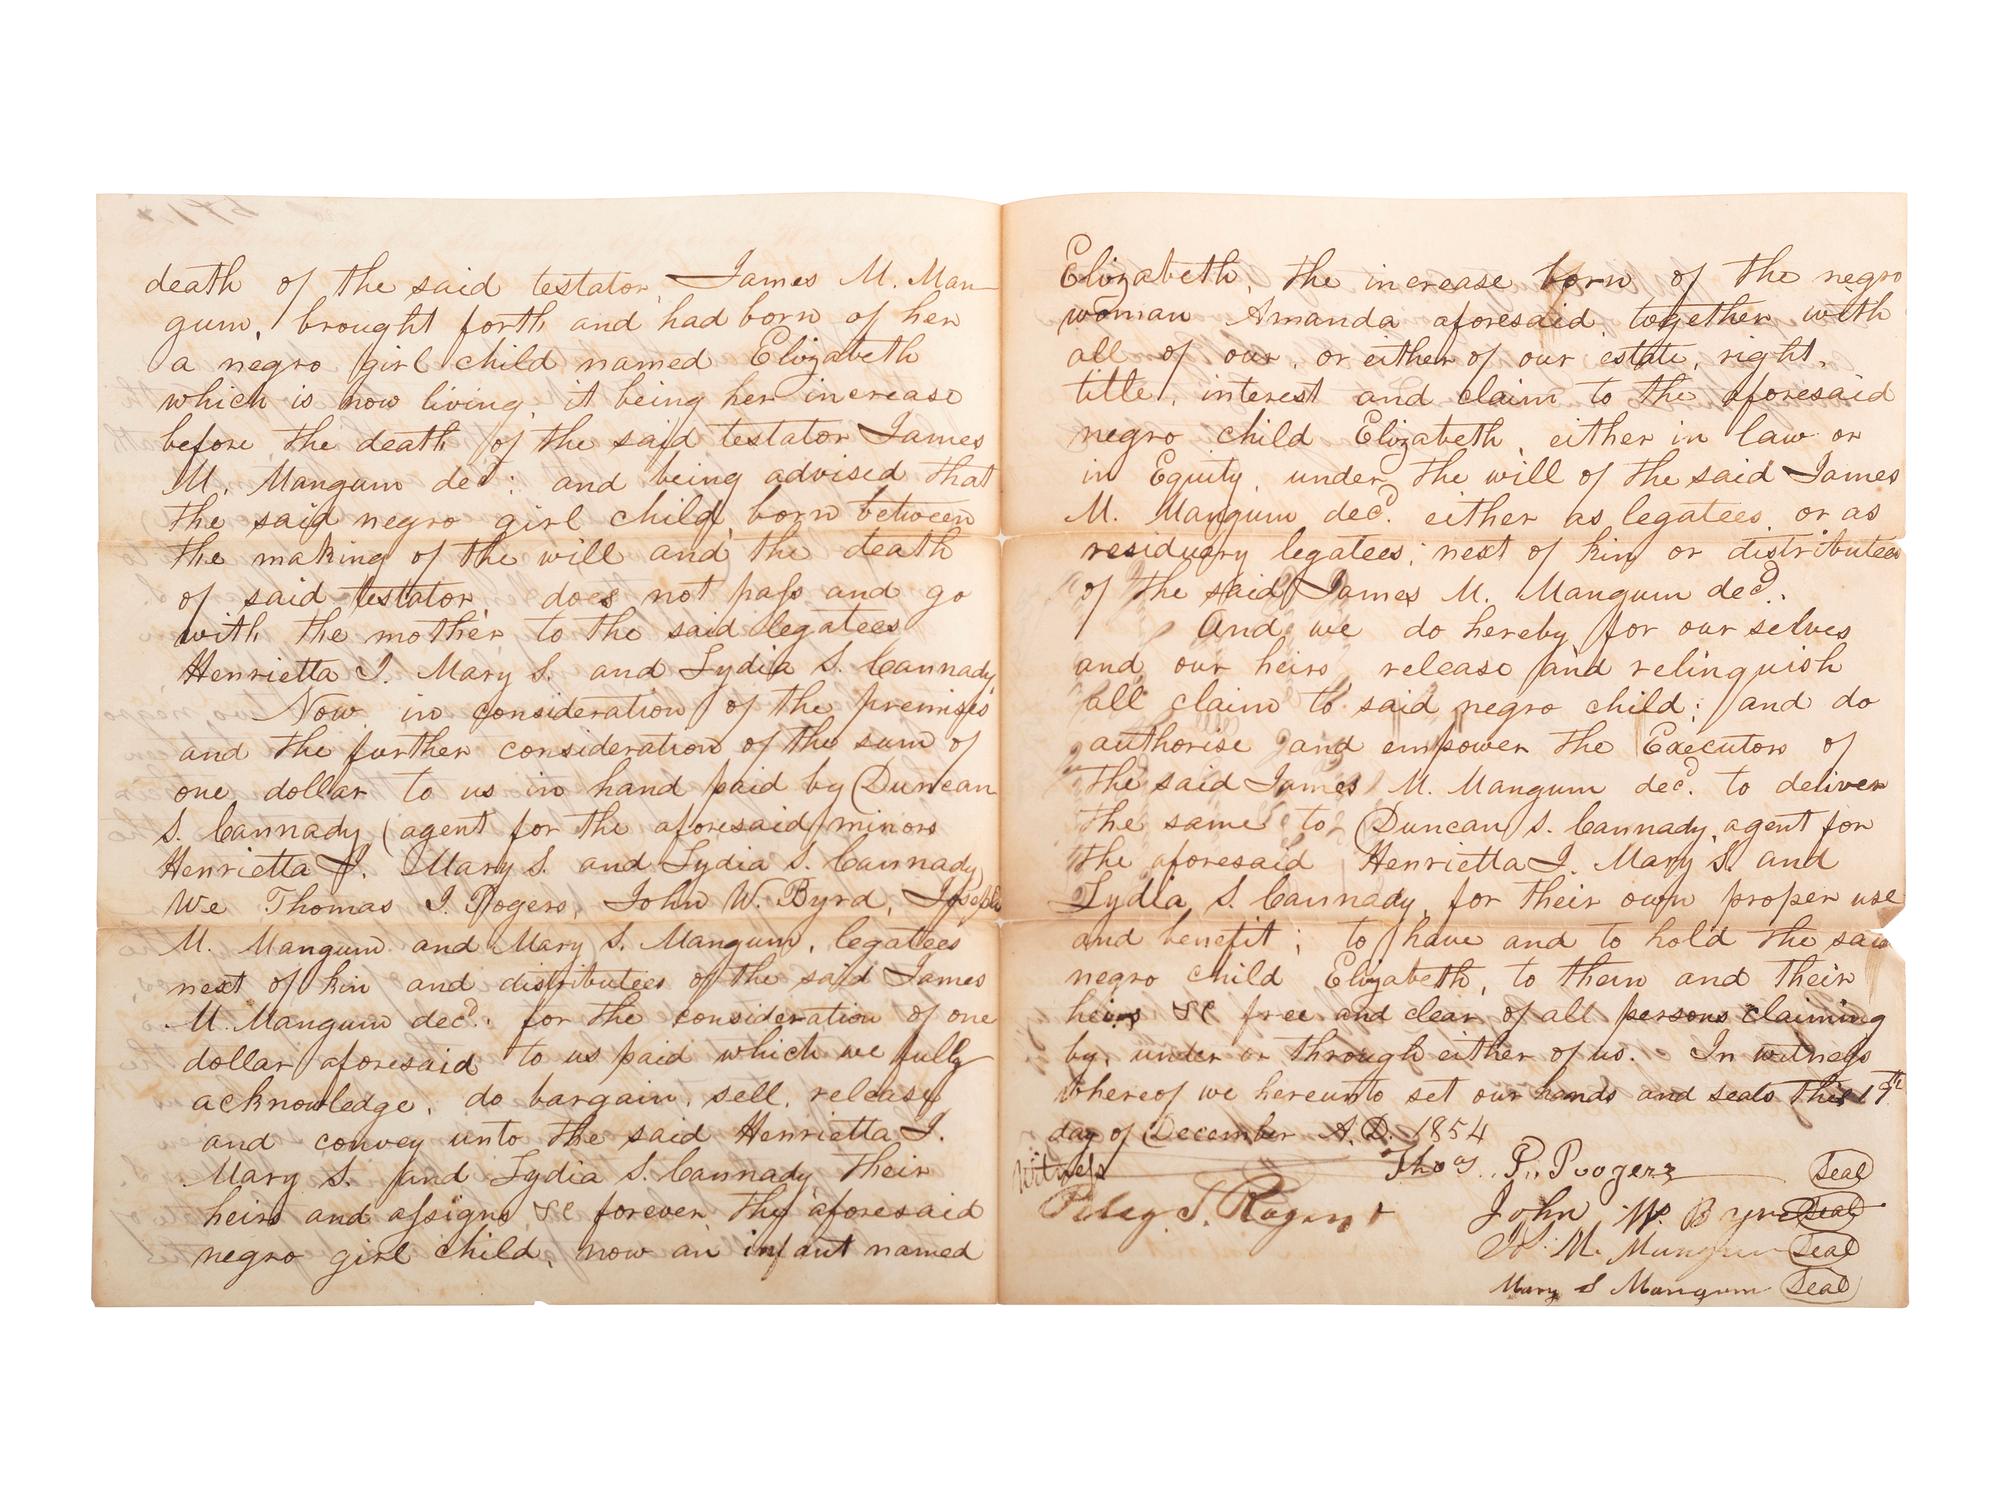 death of the said testator, James M. Man-
gum, brought forth and had born of her
a negro girl child named Elizabeth
which is now living, it being her increase
before the death of the said testator James
M. Mangum decd: and being advised that
the said negro girl child, born between
the making of the will and the death
of said testator, does not pass and go
with the mother to the said legatees
Henrietta J. Mary S. and Lydia S. Cannady,
Now in consideration of the premises
and the further consideration of the sum of
one dollar to us in hand paid by Duncan
S. Cannady (agent for the aforesaid minors
Henrietta J. Mary S. and Lydia S. Cannady)
We Thomas J. Rogers, John W. Byrd, Joseph
M. Mangum and Mary S. Mangum, legatees
next of kin and distributees of the said James
M. Mangum decd. for the consideration of one
dollar aforesaid to us paid which we fully
acknowledge, do bargain, sell, release
and convey unto the said Henrietta J.
Mary S. and Lydia S. Cannady their
heirs and assigns &c forever, the aforesaid
negro girl child, now an infant named
Elizabeth, the increase born of the negro
woman Amanda aforesaid, together with
all of our, or either of our estate, right,
title, interest and claim to the aforesaid
negro child Elizabeth, either in law or
in Equity, under the will of the said James
M. Mangum decd. either as legatees, or as
residuary legatees, next of kin or distributees
of the said James M. Mangum decd.
And we do hereby for our selves
and our heirs release and relinquish
all claim to said negro child; and do
authorise and empower the Executors of
the said James M. Mangum decd. to deliver
the same to Duncan S. Cannady, agent for
the aforesaid Henrietta J. Mary S. and
Lydia S. Cannady, for their own proper use
and benefit; to have and to hold the said
negro child Elizabeth, to them and their
heirs &c free and clear of all persons claiming
by, under or through either of us. In witness
whereof we hereunto set our hands and seals this 19th
day of December A.D. 1854
Witness Thos. Rogers Seal
John W. Byrd Seal
M. Mangum Seal
Mary S Mangum Seal